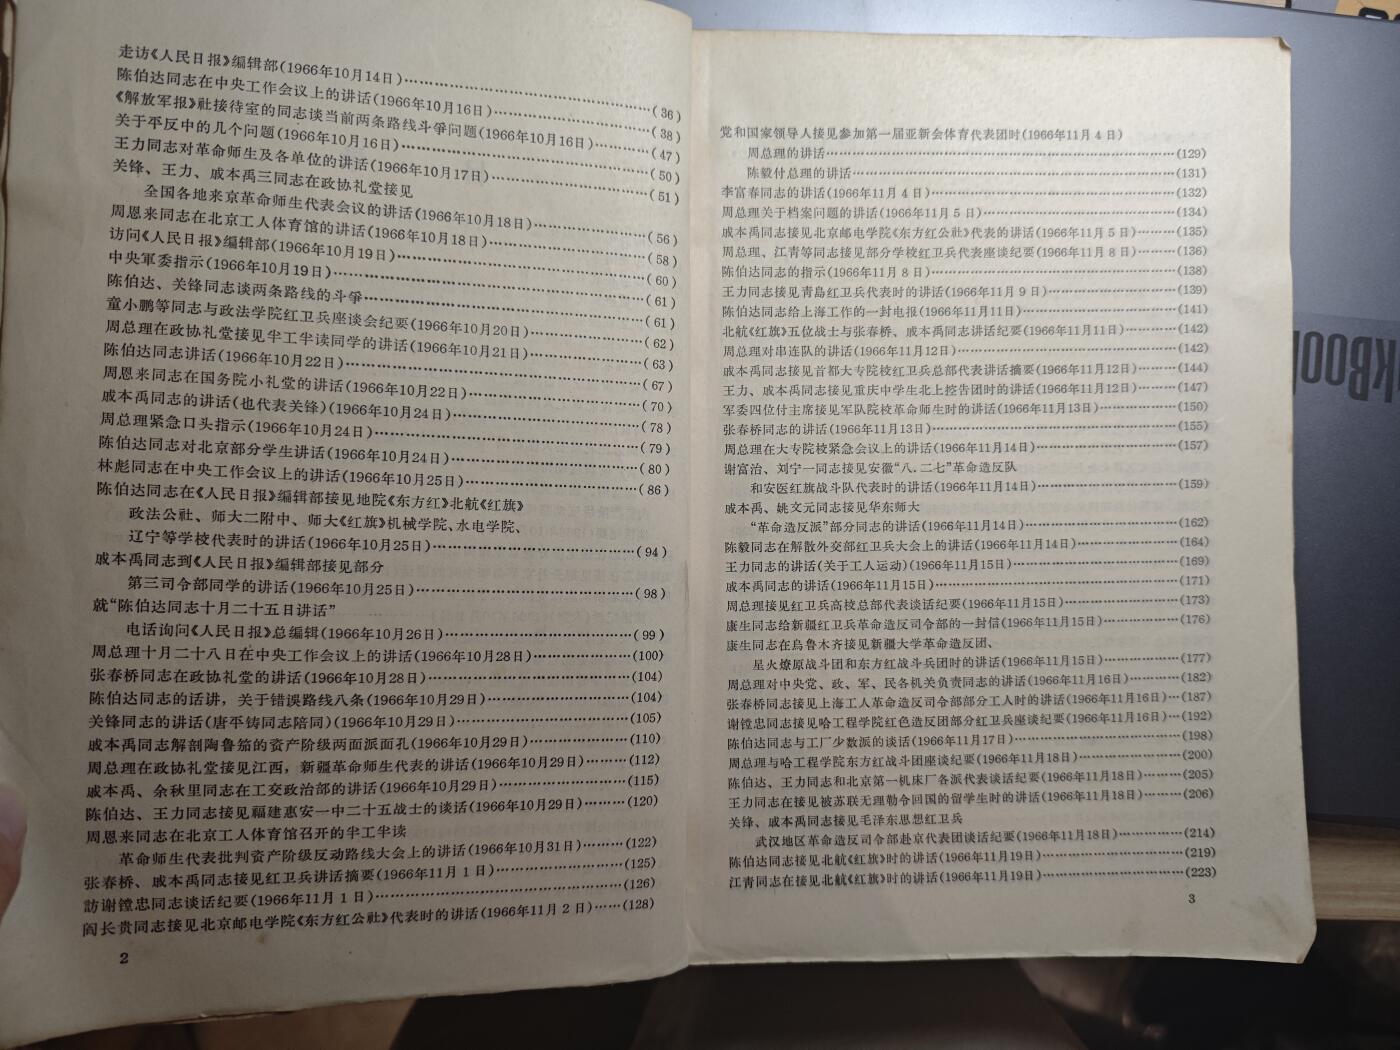 走访《人民日报》编辑部(1966年10月14日)……………………………………(36)
陈伯达同志在中央工作会议上的讲话(1966年10月16日)……………………(38)
《解放军报》社接待室的同志谈当前两条路线斗爭问题(1966年10月16日)……(47)
关于平反中的几个问题(1966年10月16日)……………………………………(50)
王力同志对革命师生及各单位的讲话(1966年10月17日)……………………(51)
关锋、王力、戚本禹三同志在政协礼堂接见
全国各地来京革命师生代表会议的讲话(1966年10月18日)…………………(56)
周恩来同志在北京工人体育馆的讲话(1966年10月18日)……………………(58)
访问《人民日报》编辑部(1966年10月19日)……………………………………(60)
中央軍委指示(1966年10月19日)………………………………………………(61)
陈伯达、关锋同志谈两条路线的斗爭……………………………………………(61)
童小鹏等同志与政法学院红卫兵座谈会纪要(1966年10月20日)……………(62)
周总理在政协礼堂接见半工半读同学的讲话(1966年10月21日)……………(63)
陈伯达同志讲话(1966年10月22日)……………………………………………(67)
周恩来同志在国务院小礼堂的讲话(1966年10月22日)………………………(70)
戚本禹同志的讲话(也代表关锋)(1966年10月24日)…………………………(78)
周总理紧急口头指示(1966年10月24日)………………………………………(79)
陈伯达同志对北京部分学生讲话(1966年10月24日)…………………………(80)
林彪同志在中央工作会议上的讲话(1966年10月25日)………………………(86)
陈伯达同志在《人民日报》编辑部接见地院《东方红》北航《红旗》
政法公社、师大二附中、师大《红旗》机械学院、水电学院、
辽宁等学校代表时的讲话(1966年10月25日)…………………………………(94)
戚本禹同志到《人民日报》编辑部接见部分
第三司令部同学的讲话(1966年10月25日)……………………………………(98)
就“陈伯达同志十月二十五日讲话”
电话询问《人民日报》总编辑(1966年10月26日)………………………………(99)
周总理十月二十八日在中央工作会议上的讲话(1966年10月28日)…………(100)
张春桥同志在政协礼堂的讲话(1966年10月28日)……………………………(104)
陈伯达同志的话讲，关于错误路线八条(1966年10月29日)…………………(104)
关锋同志的讲话(唐平铸同志陪同)(1966年10月29日)………………………(105)
戚本禹同志解剖陶鲁笳的资产阶级两面派面孔(1966年10月29日)…………(110)
周总理在政协礼堂接见江西，新疆革命师生代表的讲话(1966年10月29日)……(112)
戚本禹、余秋里同志在工交政治部的讲话(1966年10月29日)………………(115)
陈伯达、王力同志接见福建惠安一中二十五战士的谈话(1966年10月29日)……(120)
周恩来同志在北京工人体育馆召开的半工半读
革命师生代表批判资产阶级反动路线大会上的讲话(1966年10月31日)……(122)
张春桥、戚本禹同志接见红卫兵讲话摘要(1966年11月1日)…………………(125)
訪谢镗忠同志谈话纪要(1966年11月1日)……………………………………(126)
阎长贵同志接见北京邮电学院《东方红公社》代表时的讲话(1966年11月2日)……(128)
2
党和国家领导人接见参加第一届亚新会体育代表团时(1966年11月4日)
周总理的讲话………………………………………………………………(129)
陈毅付总理的讲话…………………………………………………………(131)
李富春同志的讲话(1966年11月4日)…………………………………………(132)
周总理关于档案问题的讲话(1966年11月5日)………………………………(134)
戚本禹同志接见北京邮电学院《东方红公社》代表的讲话(1966年11月5日)……(135)
周总理、江青等同志接见部分学校红卫兵代表座谈纪要(1966年11月8日)……(136)
陈伯达同志的指示(1966年11月8日)…………………………………………(138)
王力同志接见青島红卫兵代表时的讲话(1966年11月9日)…………………(139)
陈伯达同志给上海工作的一封电报(1966年11月11日)………………………(141)
北航《红旗》五位战士与张春桥、戚本禹同志讲话纪要(1966年11月11日)……(142)
周总理对串连队的讲话(1966年11月12日)……………………………………(142)
戚本禹同志接见首都大专院校红卫兵总部代表讲话摘要(1966年11月12日)……(144)
王力、戚本禹同志接见重庆中学生北上控告团时的讲话(1966年11月12日)……(147)
军委四位付主席接见军队院校革命师生时的讲话(1966年11月13日)………(150)
张春桥同志的讲话(1966年11月13日)…………………………………………(155)
周总理在大专院校紧急会议上的讲话(1966年11月14日)……………………(157)
谢富治、刘宁一同志接见安徽“八.二七”革命造反队
和安医红旗战斗队代表时的讲话(1966年11月14日)…………………………(159)
戚本禹、姚文元同志接见华东师大
“革命造反派”部分同志的讲话(1966年11月14日)……………………………(162)
陈毅同志在解散外交部红卫兵大会上的讲话(1966年11月14日)……………(164)
王力同志的讲话(关于工人运动)(1966年11月15日)…………………………(169)
戚本禹同志的讲话(1966年11月15日)…………………………………………(171)
周总理接见红卫兵高校总部代表谈话纪要(1966年11月15日)………………(173)
康生同志给新疆红卫兵革命造反司令部的一封信(1966年11月15日)………(176)
康生同志在烏鲁木齐接见新疆大学革命造反团、
星火燎原战斗团和东方红战斗兵团时的讲话(1966年11月15日)……………(177)
周总理对中央党、政、军、民各机关负责同志的讲话(1966年11月16日)………(182)
张春桥同志接见上海工人革命造反司令部部分工人时的讲话(1966年11月16日)…(187)
谢镗忠同志接见哈工程学院红色造反团部分红卫兵座谈纪要(1966年11月16日)…(192)
陈伯达同志与工厂少数派的谈话(1966年11月17日)…………………………(198)
周总理与哈工程学院东方红战斗团座谈纪要(1966年11月18日)……………(200)
陈伯达、王力同志和北京第一机床厂各派代表谈话纪要(1966年11月18日)……(205)
王力同志在接见被苏联无理勒令回国的留学生时的讲话(1966年11月18日)……(206)
关锋、戚本禹同志接见毛泽东思想红卫兵
武汉地区革命造反司令部赴京代表团谈话纪要(1966年11月18日)…………(214)
陈伯达同志接见北航《红旗》时的讲话(1966年11月19日)……………………(219)
江青同志在接见北航《红旗》时的讲话(1966年11月19日)……………………(223)
3